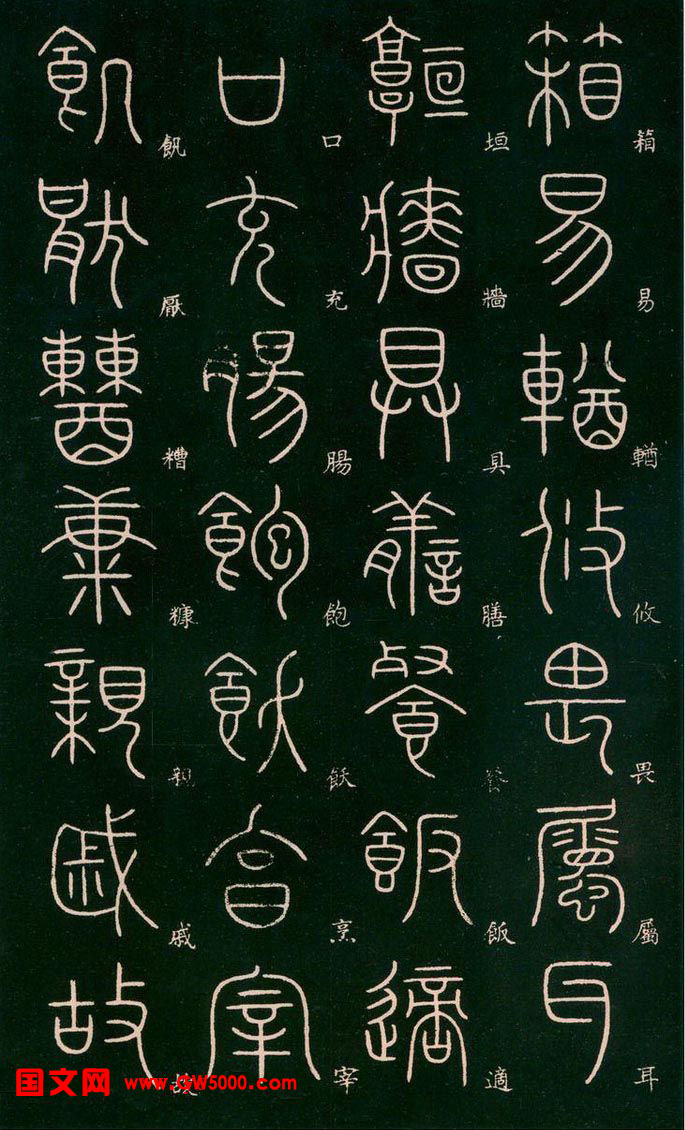 箱易輶攸畏屬耳
垣牆具膳餐飯適
口充腸飽飫烹宰
飢厭糟糠親戚故
国文网 www.GW5000.com